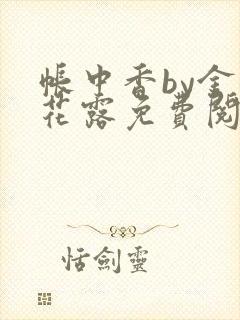 帳中香by金
花露免費閱
恬劍靈